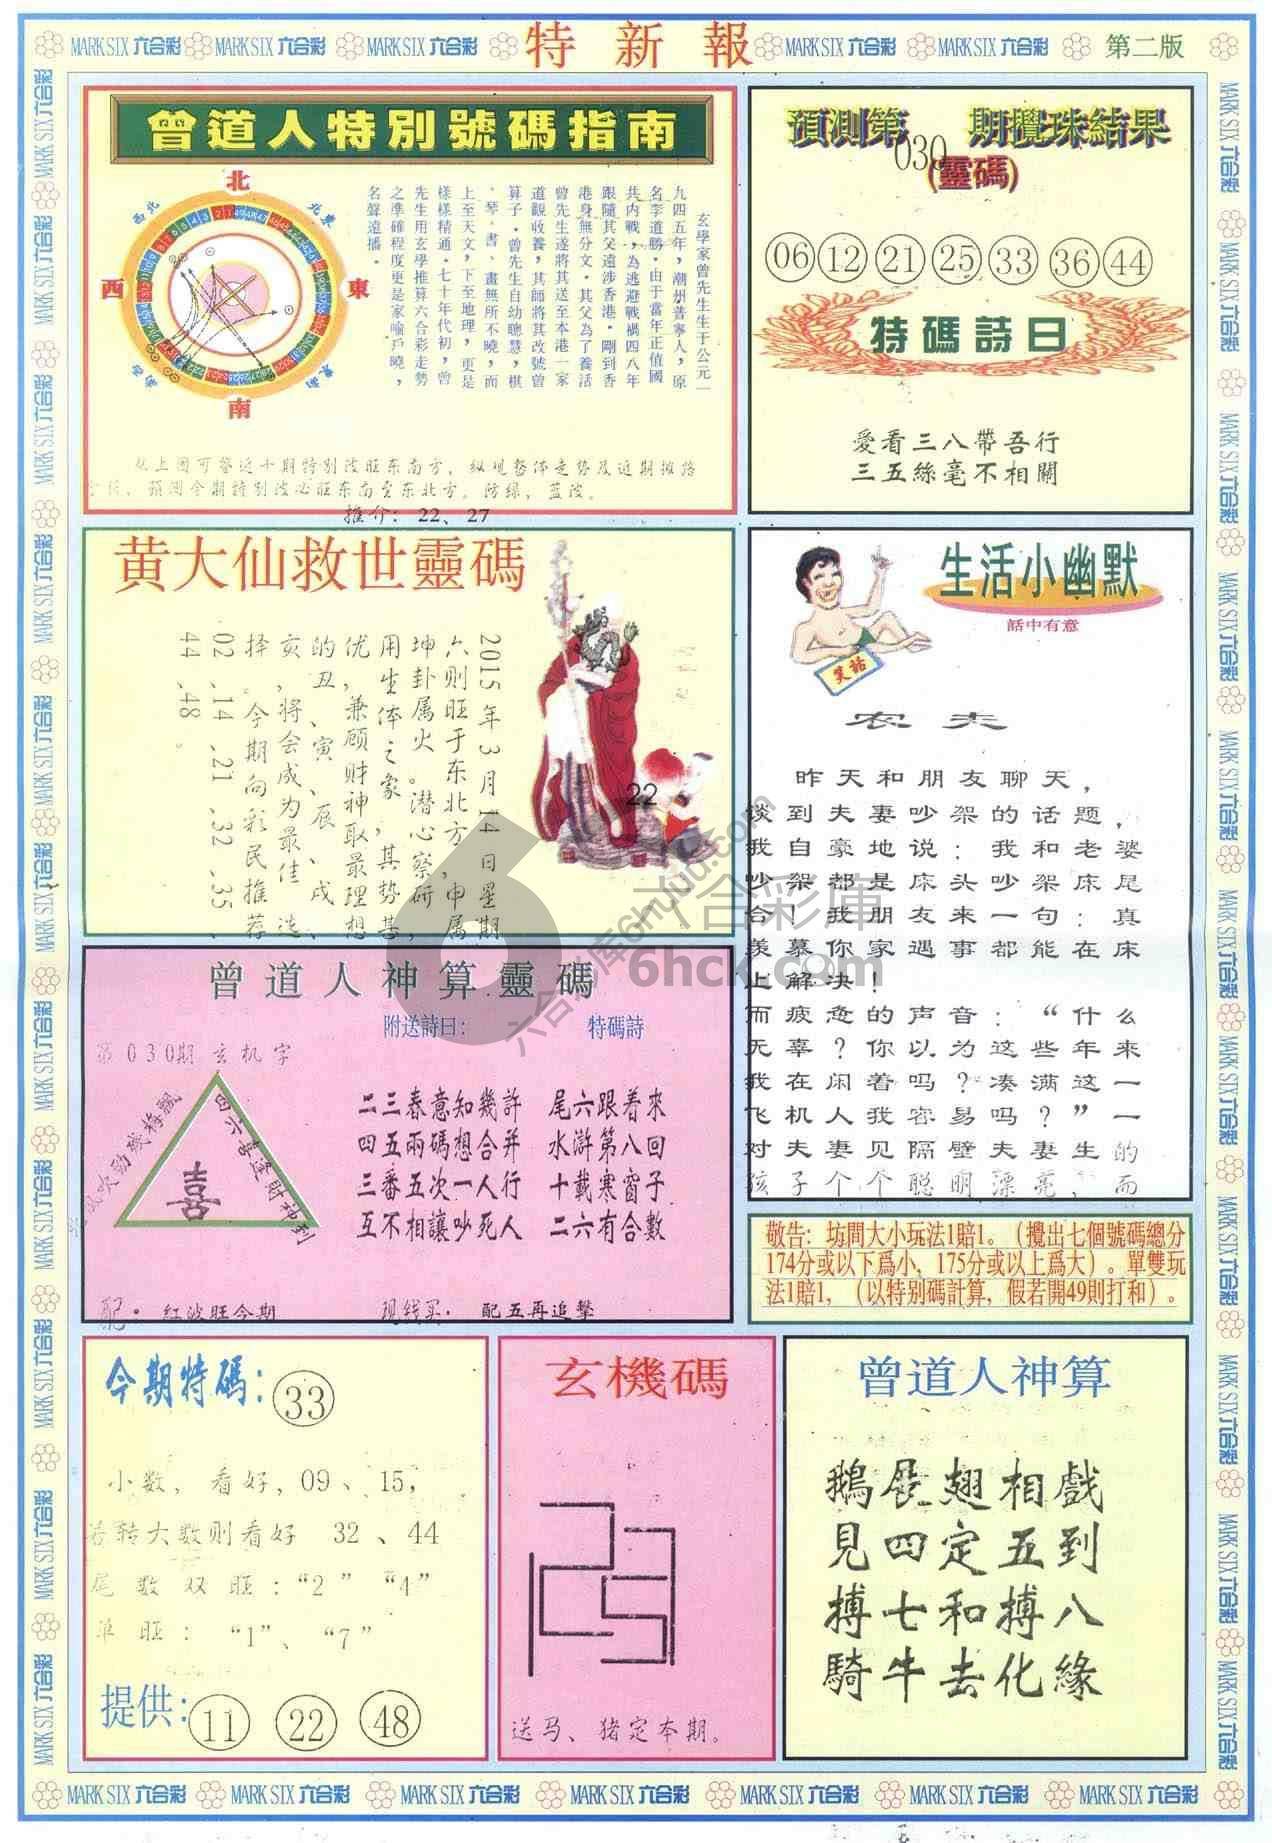 MARK SIX 六合彩 MARK SIX 六合彩 MARK SIX 六合彩 特新報 MARK SIX 六合彩 MARK SIX 六合彩 第二版
曾道人特別號碼指南
北
東北
東
東南
南
西
西北
玄學家曾先生生于公元一
九四五年，潮州普寧人，原
名李道勝。由于當年正值國
共内戰，為逃避戰禍四八年
跟隨其父遠涉香港。剛到香
港身無分文。其父為了養活
曾先生遂將其送至本港一家
道觀收養，其師將其改號曾
算子。曾先生自幼聰慧，棋
、琴。書、畫無所不曉，而
上至天文，下至地理，更是
樣樣精通。七十年代初，曾
先生用玄學推算六合彩走勢
之準確程度更是家喻戶曉，
名聲遠播。
从上图可鉴近十期特别波旺东南方，纵观整体走势及近期摊路
预测今期特别波必旺东南至东北方。防绿、蓝波。
推介：22、27
預測第030期攪珠結果
(靈碼)
06 12 21 25 33 36 44
特碼詩曰
愛看三八帶吾行
三五絲毫不相關
黄大仙救世靈碼
2015年3月14日星期
六则旺于东北方，申属
坤卦属火。潜心察研，
用生体之象，其势甚
优，兼顾财神取最理想
的丑、寅、辰、戌、
亥，将会成为最佳选
择。今期向彩民推荐
02.14.21.32.35.
44.48
22
生活小幽默
話中有意
笑話
农夫
昨天和朋友聊天，
谈到夫妻吵架的话题，
我自豪地说：我和老婆
吵架都是床头吵架床尾
合！我朋友来一句：真
羡慕你家遇事都能在床
上解决！
而疲惫的声音：“什么
无辜？你以为这些年来
我在闲着吗？凑满这一
飞机人我容易吗？”一
对夫妻见隔壁夫妻生的
孩子个个聪明漂亮，而
曾道人神算靈碼
附送詩曰：
特碼詩
第030期 玄机字
四六喜逢財神到
喜
二三春意知幾許
四五兩碼想合并
三番五次一人行
互不相讓吵死人
尾六跟着來
水滸第八回
十載寒窗子
二六有合數
配：红波旺今期
现钱买：配五再追擊
敬告：坊間大小玩法1賠1。（攪出七個號碼總分
174分或以下爲小，175分或以上爲大）。單雙玩
法1賠1，（以特别碼計算，假若開49則打和）。
今期特碼：33
小数，看好，09、15，
若转大数则看好 32、44
尾数双旺：“2” “4”
单旺：“1”、“7”
提供：11 22 48
玄機碼
送马、猪定本期。
曾道人神算
鵝展翅相戲
見四定五到
搏七和搏八
騎牛去化緣
六合彩庫
6hck.com
六合彩库6hud.com
MARK SIX 六合彩 MARK SIX 六合彩 MARK SIX 六合彩 MARK SIX 六合彩 MARK SIX 六合彩 MARK SIX 六合彩 MARK SIX 六合彩